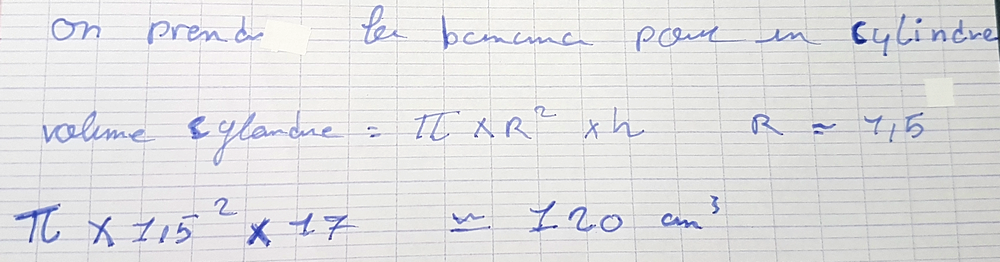 on prend la banana pour un cylindre
volume cylandre = π × R² × h R ≈ 1,5
π × 1,5² × 17 ≃ 120 cm³